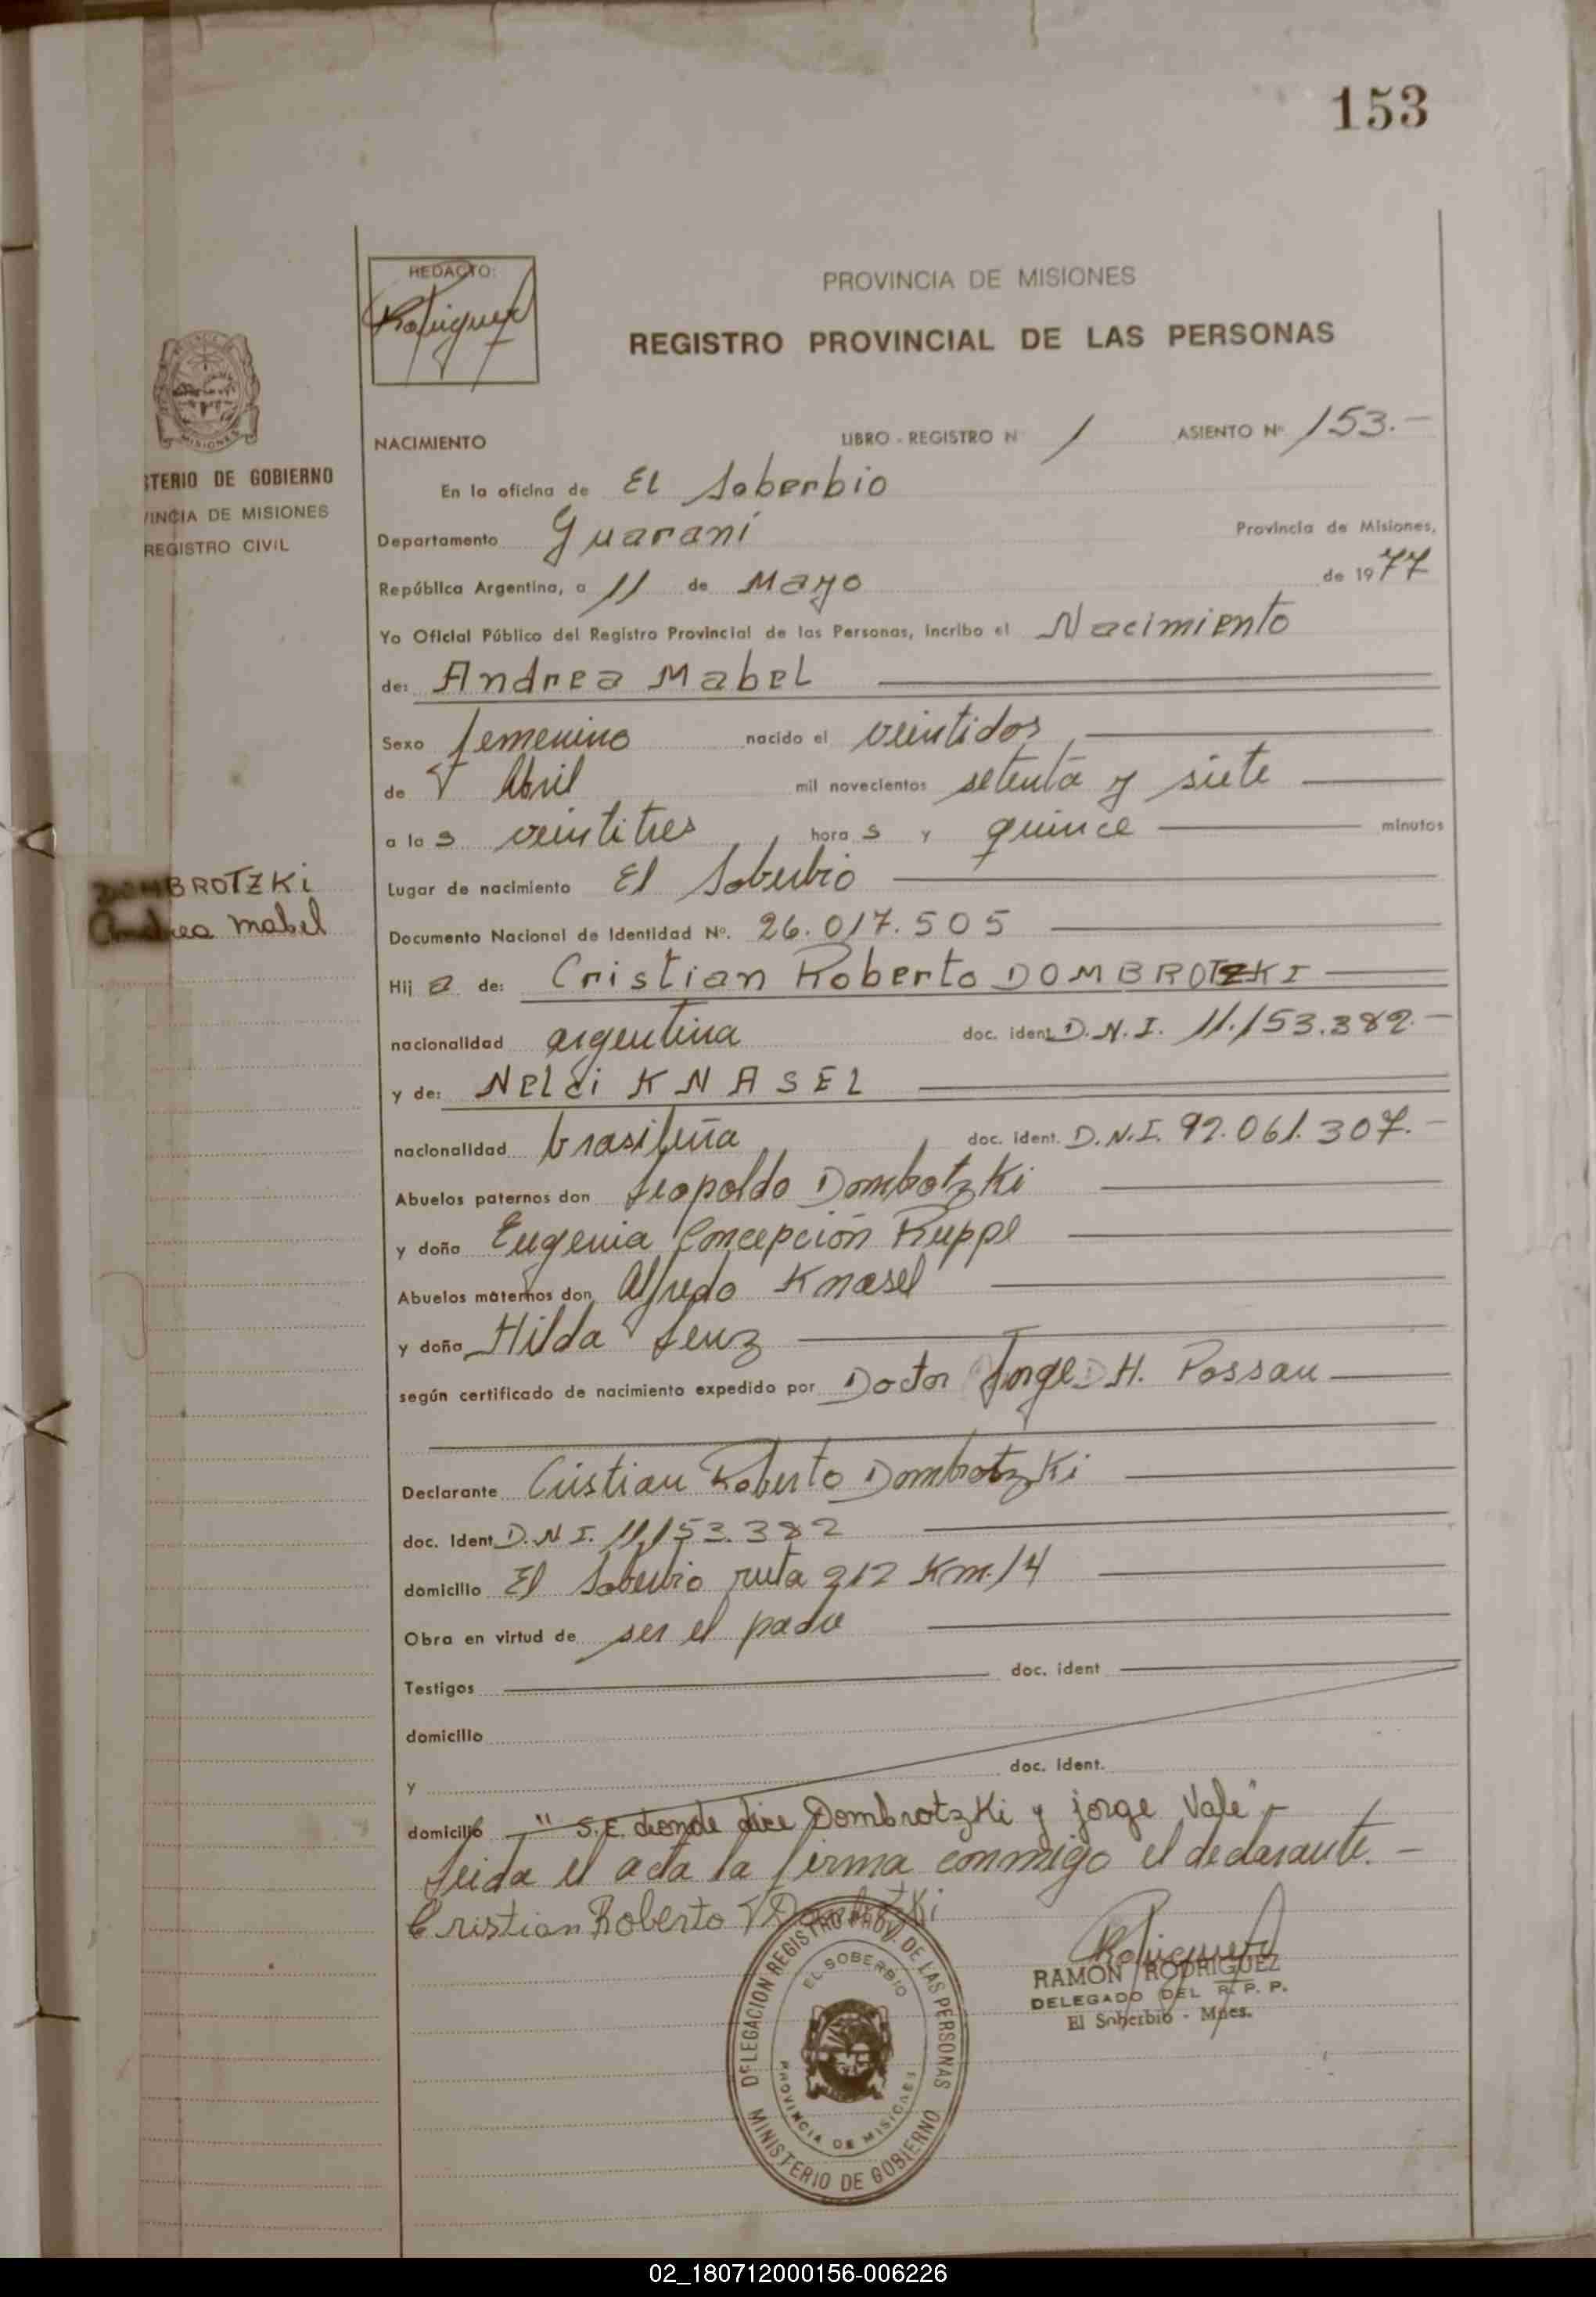 153
REDACTO:
PROVINCIA DE MISIONES
REGISTRO PROVINCIAL DE LAS PERSONAS
MISIONES
STERIO DE GOBIERNO
VINCIA DE MISIONES
REGISTRO CIVIL
NACIMIENTO LIBRO - REGISTRO N 1 ASIENTO Nº 153.-
En la oficina de El Soberbio
Departamento Guaraní Provincia de Misiones,
República Argentina, a 11 de Mayo de 1977
Yo Oficial Público del Registro Provincial de las Personas, incribo el Nacimiento
de: Andrea Mabel
Sexo femenino nacido el veintidos
de Abril mil novecientos setenta y siete
a las veintitres horas y quince minutos
Lugar de nacimiento El Soberbio
DOMBROTZKi
Andrea Mabel
Documento Nacional de Identidad Nº. 26.017.505
Hija de: Cristian Roberto DOMBROTZKI
nacionalidad argentina doc. ident. D.N.I. 11.153.382.-
y de: Nelci KNASEL
nacionalidad brasileña doc. ident. D.N.I. 92.061.307.-
Abuelos paternos don Leopoldo Dombotzki
y doña Eugenia Concepción Ruppel
Abuelos maternos don Alfredo Knasel
y doña Hilda Lenz
según certificado de nacimiento expedido por Doctor Jorge H. Possau
Declarante Cristian Roberto Dombrotzki
doc. Ident. D.N.I. 11.153.382
domicilio El Soberbio ruta 212 Km. 14
Obra en virtud de ser el padre
Testigos doc. ident
domicilio
y doc. ident.
domicilio " S.E. donde dice Dombrotzki y jorge Vale"-
Leida el acta la firma conmigo el declarante.-
Cristian Roberto
RAMON RODRIGUEZ
DELEGADO DEL R. P. P.
El Soberbio - Mnes.
DELEGACION REGISTRO PROV. DE LAS PERSONAS
EL SOBERBIO
PROVINCIA DE MISIONES
MINISTERIO DE GOBIERNO
02_180712000156-006226